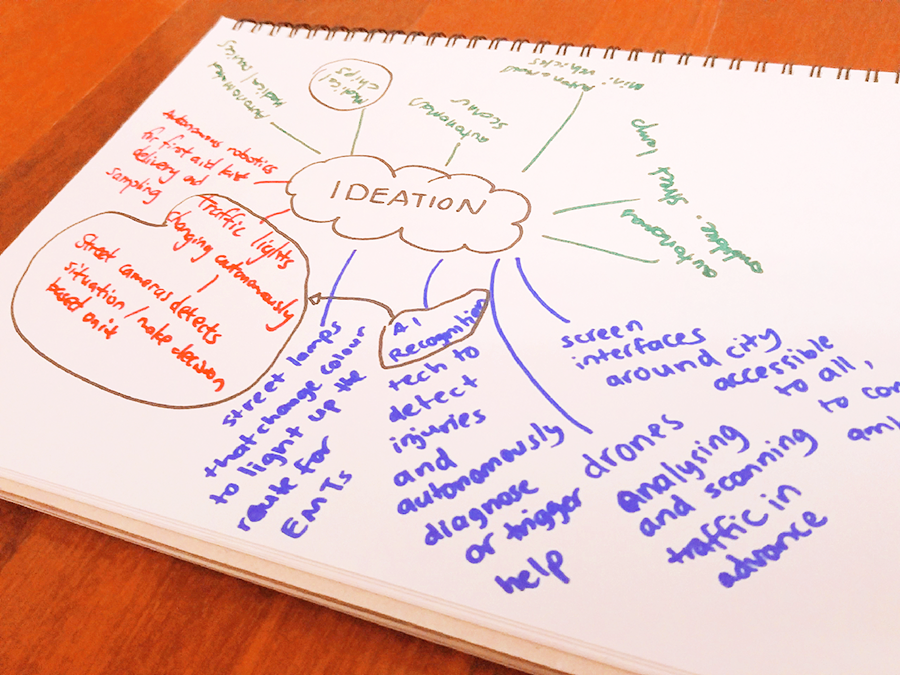 IDEATION
Autonomous
Medical Devices
Medical
Chips
autonomous
scanner
Autonomous
mini vehicles
street lamp
autonomous
Autonomous robotics
for first aid kit
delivery and
sampling
Traffic lights
changing autonomously
Street cameras detects
situation / make decision
based on it
street lamps
that change colour
to light up the
route for
EMTs
AI
Recognition
tech to
detect
injuries
and
autonomously
diagnose
or trigger
help
drones
analysing
and scanning
traffic in
advance
screen
interfaces
around city
accessible
to all,
to con
amb